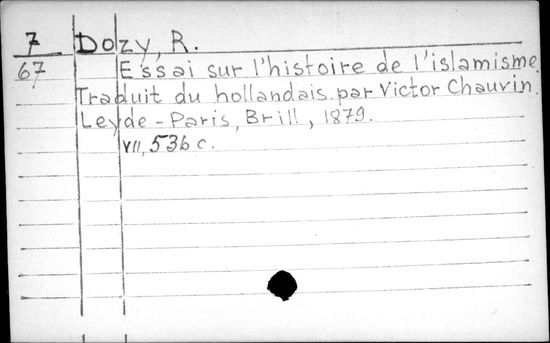 7 Dozy, R.
67 Essai sur l'histoire de l'islamisme.
Traduit du hollandais par Victor Chauvin.
Leyde - Paris, Brill, 1879.
VII, 536 c.